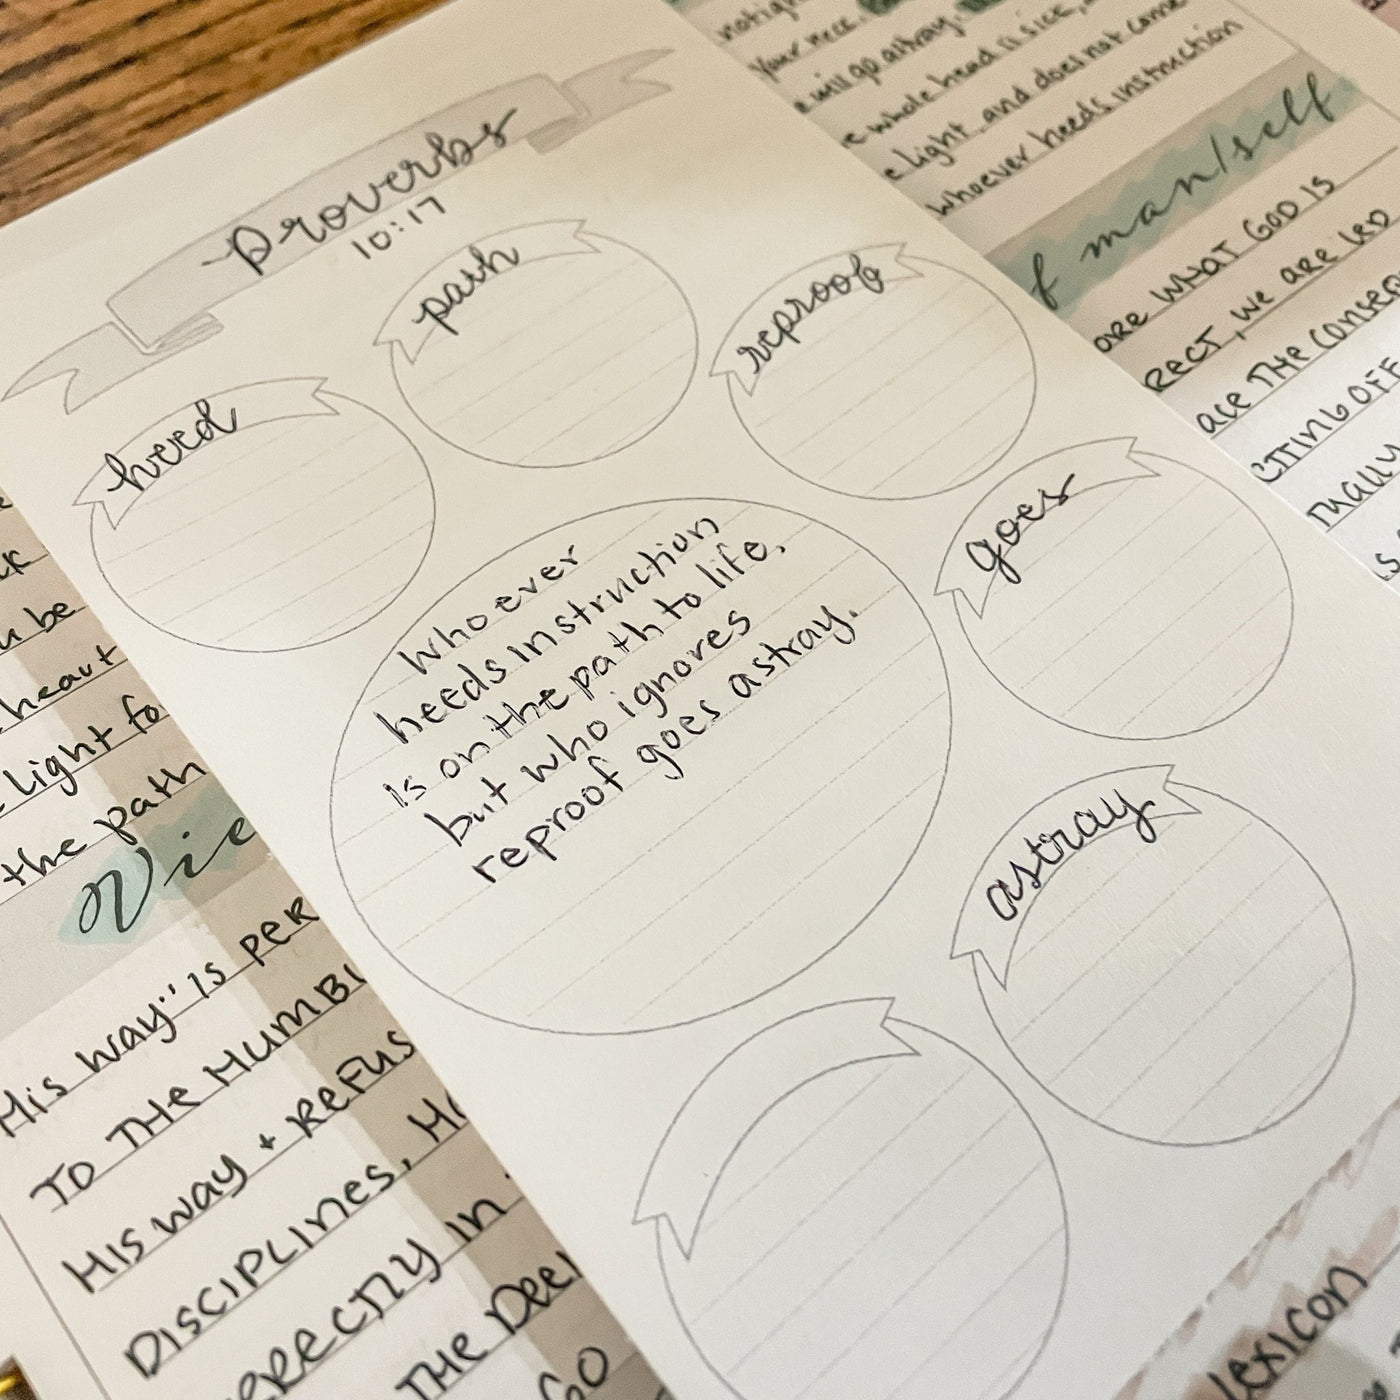 Proverbs
10:17
heed
path
reproof
goes
astray
whoever
heeds instruction
is on the path to life,
but who ignores
reproof goes astray.
your neck.
will go astray.
whole head is sick,
light and does not come
whoever heeds instruction
f man/self
are WHAT GOD IS
RECT, we are LeD
ace THE conseq
CTTING OFF
u be
heart
light fo
the path
Vie
His way" is per
TO THe HUMBL
HIS way + reFUS
DISCIPLINes, H
errecTLY In
THe Deel
GO
lexicon